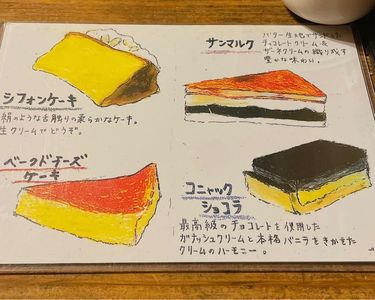 シフォンケーキ
絹のような舌触りの柔らかなケーキ。
生クリームでどうぞ。
サンマルク
バター生地でサンドした
チョコレートクリームと
クリームの織り成す
豊かな味わい。
ベークドチーズ
ケーキ
コニャック
ショコラ
最高級のチョコレートを使用した
ガナッシュクリームと本格バニラをきかせた
クリームのハーモニー。